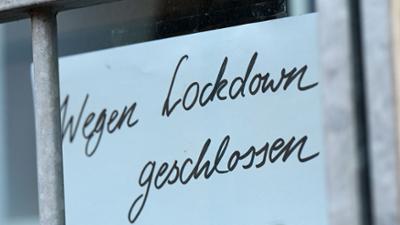 Wegen Lockdown
geschlossen